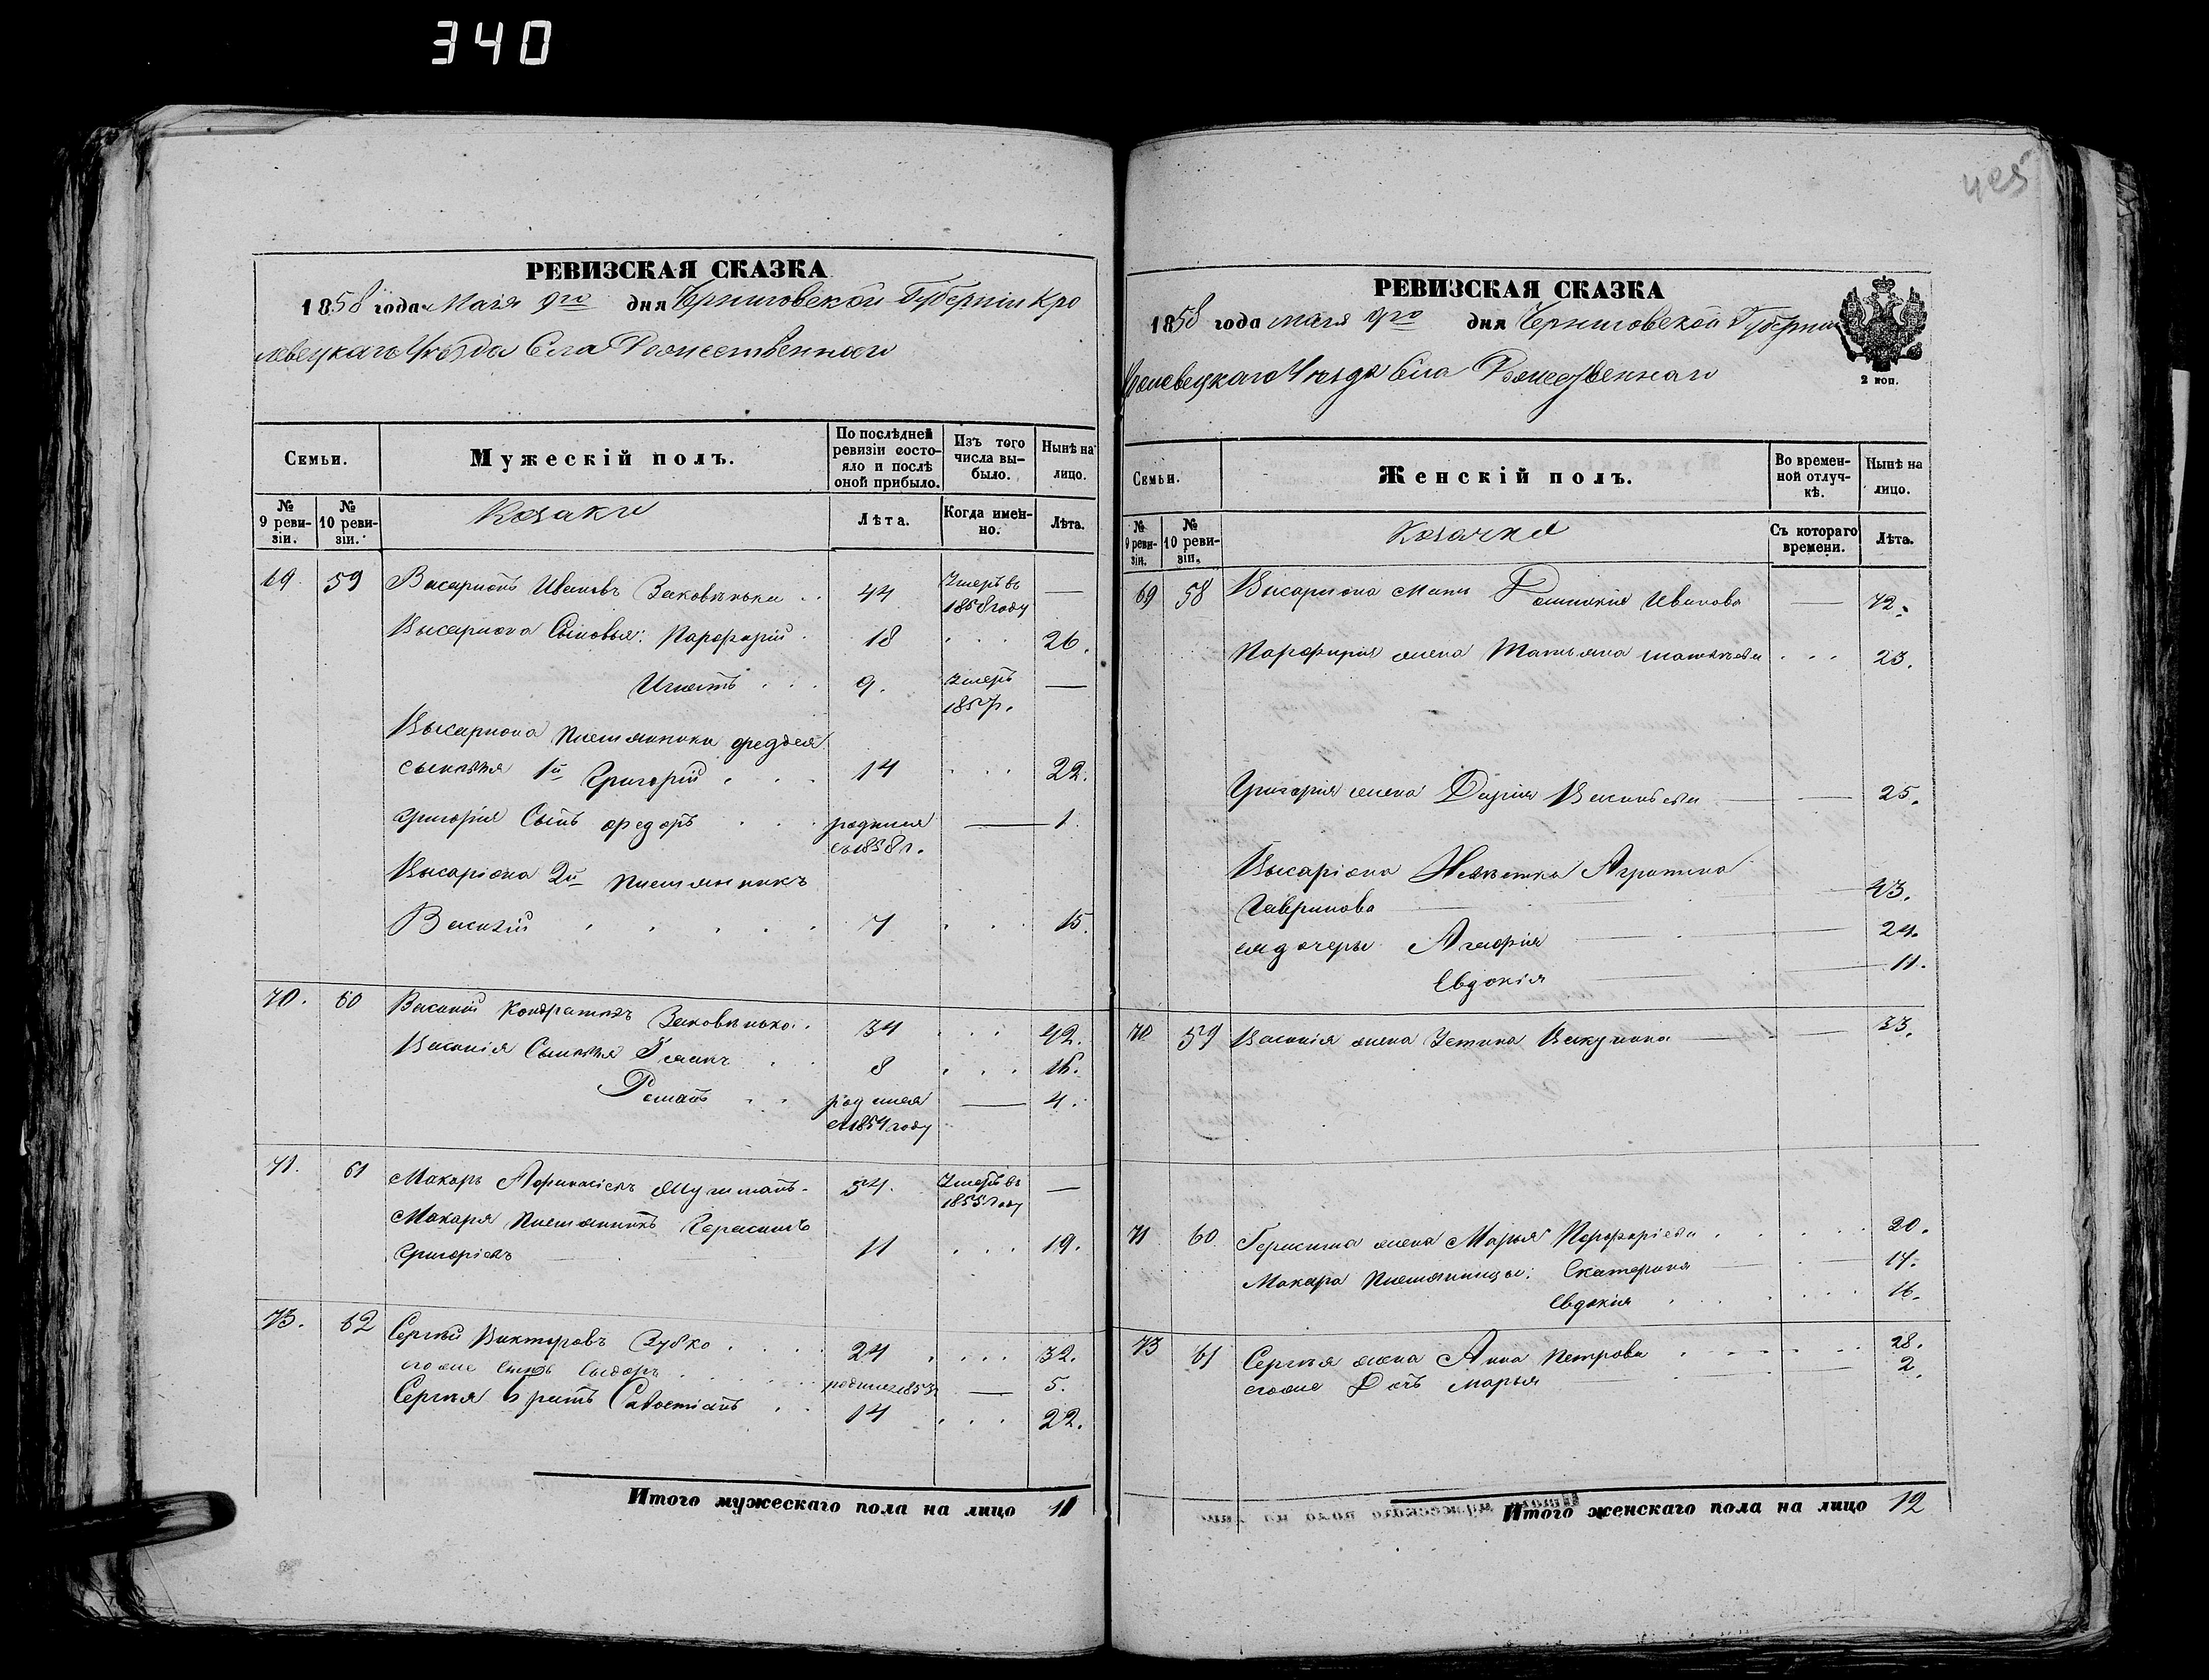 340
РЕВИЗСКАЯ СКАЗКА
1858 года Маія 9го дня Черниговской Губерніи Кро
левецкаго Уѣзда Села Рожественнаго
Семьи.
Мужескій полъ.
По послѣдней ревизіи состояло и послѣ оной прибыло.
Изъ того числа выбыло.
Нынѣ на лицо.
№ 9 ревизіи.
№ 10 ревизіи.
Козаки
Лѣта.
Когда именно.
Лѣта.
69. 59 Висаріонъ Ивановъ 44 Умеръ въ 1858 году —
Висаріона Сыновья: Парфирій 18 26.
Игнатъ 9. Умеръ 1857г. —
Висаріона племянники Федора
сыновья 1й Григорій 14 22.
Григорія Сынъ Федоръ родился съ 1858 г. — 1
Висаріона 2й племянникъ
Василій 7 15.
70. 60 Василій Кондратовъ 34 42.
Василія Сыновья 8 16.
Романъ родился съ 1854 году — 4.
71. 61 Макаръ Афанасіевъ 54. Умеръ въ 1855 году —
Макара племянникъ Герасимъ
Григоріевъ 11 19.
73. 62 Сергѣй Викторовъ Зубко 24 32.
его же сынъ Сидоръ родился 1853 — 5.
Сергѣя братъ Савостіанъ 14 22.
Итого мужескаго пола на лицо 11
РЕВИЗСКАЯ СКАЗКА
1858 года маія 9го дня Черниговской Губерніи
Кролевецкаго Уѣзда Села Рожественнаго
2 коп.
Семьи.
Женскій полъ.
Во временной отлучкѣ.
Нынѣ на лицо.
№ 9 ревизіи.
№ 10 ревизіи.
Козачки
Съ котораго времени.
Лѣта.
69 58 Висаріона мать Иванова — 72.
Парфирія жена Татьяна 23.
Григорія жена Дарія Васильева — — 25.
Висаріона Невѣстка Агрипина
Гаврилова — 43.
ея дочеры Агафія — 24.
Евдокія — 11.
70 59 Василія жена Устина — — 33.
71 60 Герасима жена Марья Порфиріева 20.
Макара племянницы: Екатерина — 17.
Евдокия 16.
73 61 Сергѣя жена Анна Петрова 28.
его же Дочь Марья — 2.
Итого женскаго пола на лицо 12